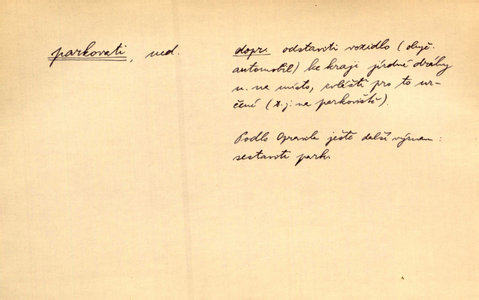 parkovati, ned.
dopr. odstaviti vozidlo (obyč.
automobil) ke kraji jízdné dráhy
n. na místo, zvláště pro to ur-
čené (t.j. na parkoviště).
Podle Opravila ještě další význam:
sestaviti park.